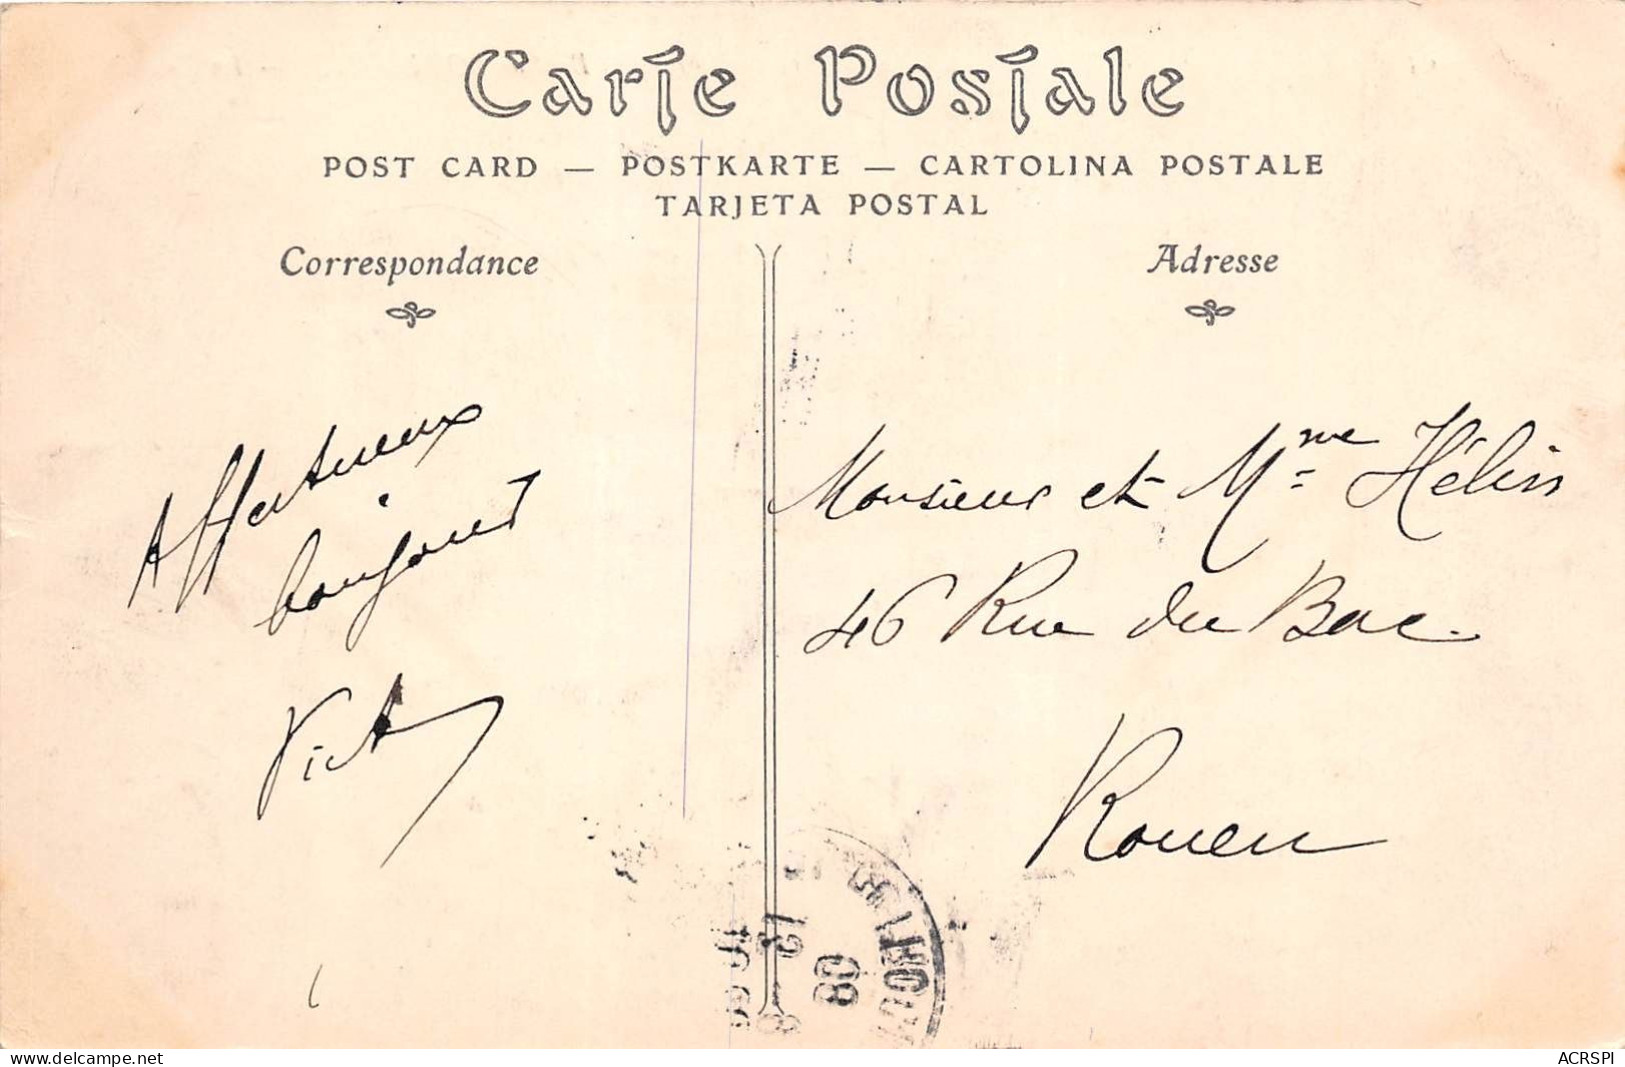 Carte Postale
POST CARD — POSTKARTE — CARTOLINA POSTALE
TARJETA POSTAL
Correspondance
Adresse
Affectueux
bonjours
Vict
Monsieur et Mme Hélin
46 Rue du Bac
Rouen
12
08
www.delcampe.net
ACRSPI